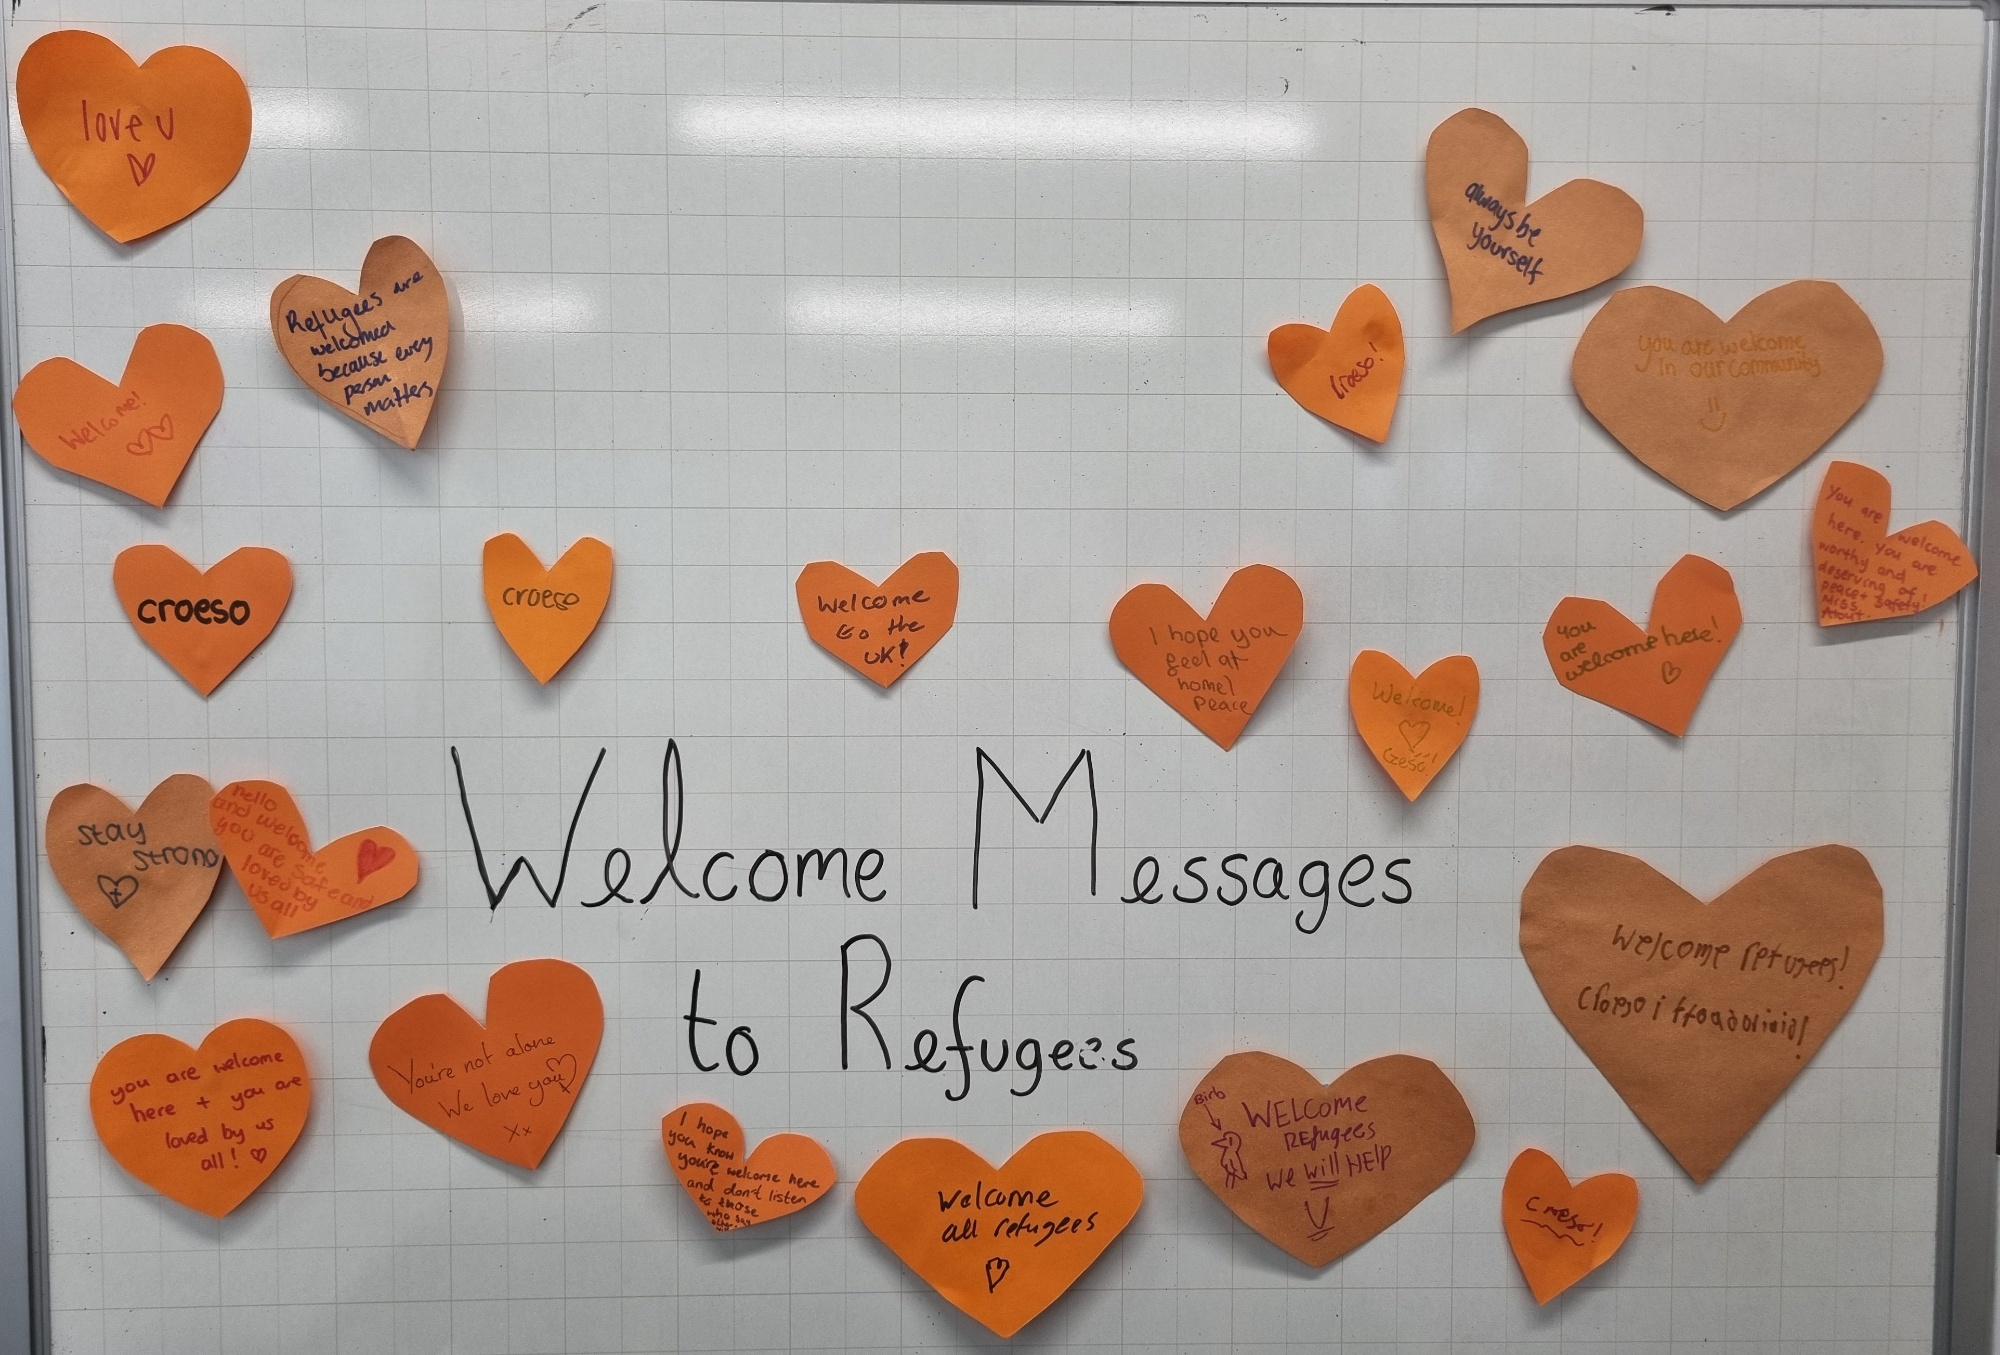 love u
Refugees are
welcomed
because every
person
matters
Welcome!
always be
yourself
Croeso!
you are welcome
in our community
You are
here. welcome
You are
worthy and
deserving of
peace + safety!
Miss
croeso
croeso
Welcome
to the
UK!
I hope you
feel at
home!
Peace
Welcome!
Cześć!
you
are
welcome here!
stay
strong
hello
and welcome
you are safe and
loved by
us all
Welcome Messages
to Refugees
Welcome refugees!
Croeso i ffoaduriaid!
you are welcome
here + you are
loved by us
all!
You're not alone
We love you
xx
I hope
you know
you're welcome here
and don't listen
to those
who say
Welcome
all refugees
Birb
WELCOME
REfugees
We will HELP
Croeso!